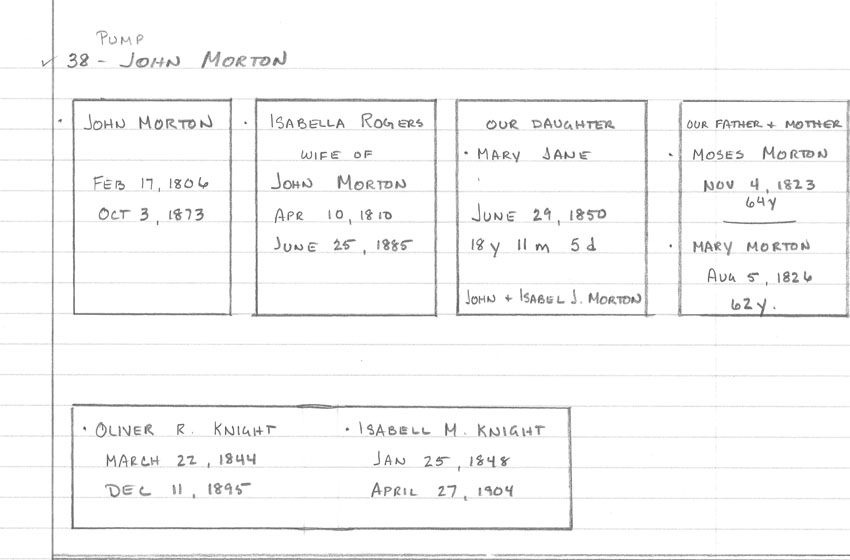 PUMP
✓ 38 - JOHN MORTON
· JOHN MORTON
FEB 17, 1806
OCT 3, 1873
· ISABELLA ROGERS
WIFE OF
JOHN MORTON
APR 10, 1810
JUNE 25, 1885
OUR DAUGHTER
· MARY JANE
JUNE 29, 1850
18 y 11 m 5 d
JOHN + ISABEL J. MORTON
OUR FATHER + MOTHER
· MOSES MORTON
NOV 4, 1823
64 Y
· MARY MORTON
AUG 5, 1826
62 Y.
· OLIVER R. KNIGHT
MARCH 22, 1844
DEC 11, 1895
· ISABELL M. KNIGHT
JAN 25, 1848
APRIL 27, 1904